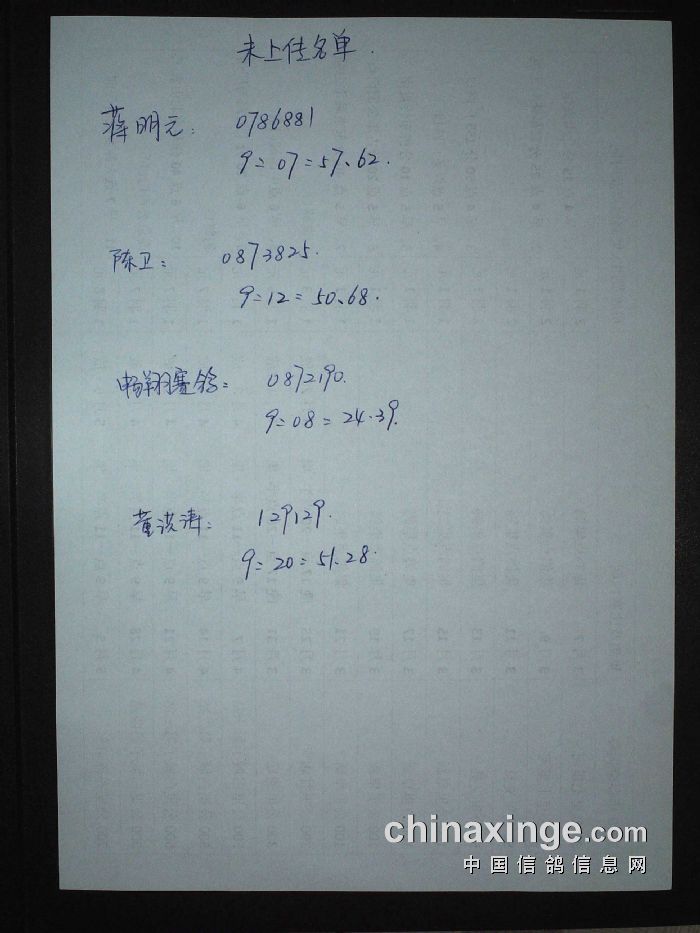 未上传名单.
蒋明元: 0786881
9=07=57.62.
陈卫: 0873825.
9=12=50.68.
翔赛鸽: 0872190.
9=08=24.39.
董洪涛: 129129.
9=20=51.28.
chinaxinge.com
中国信鸽信息网